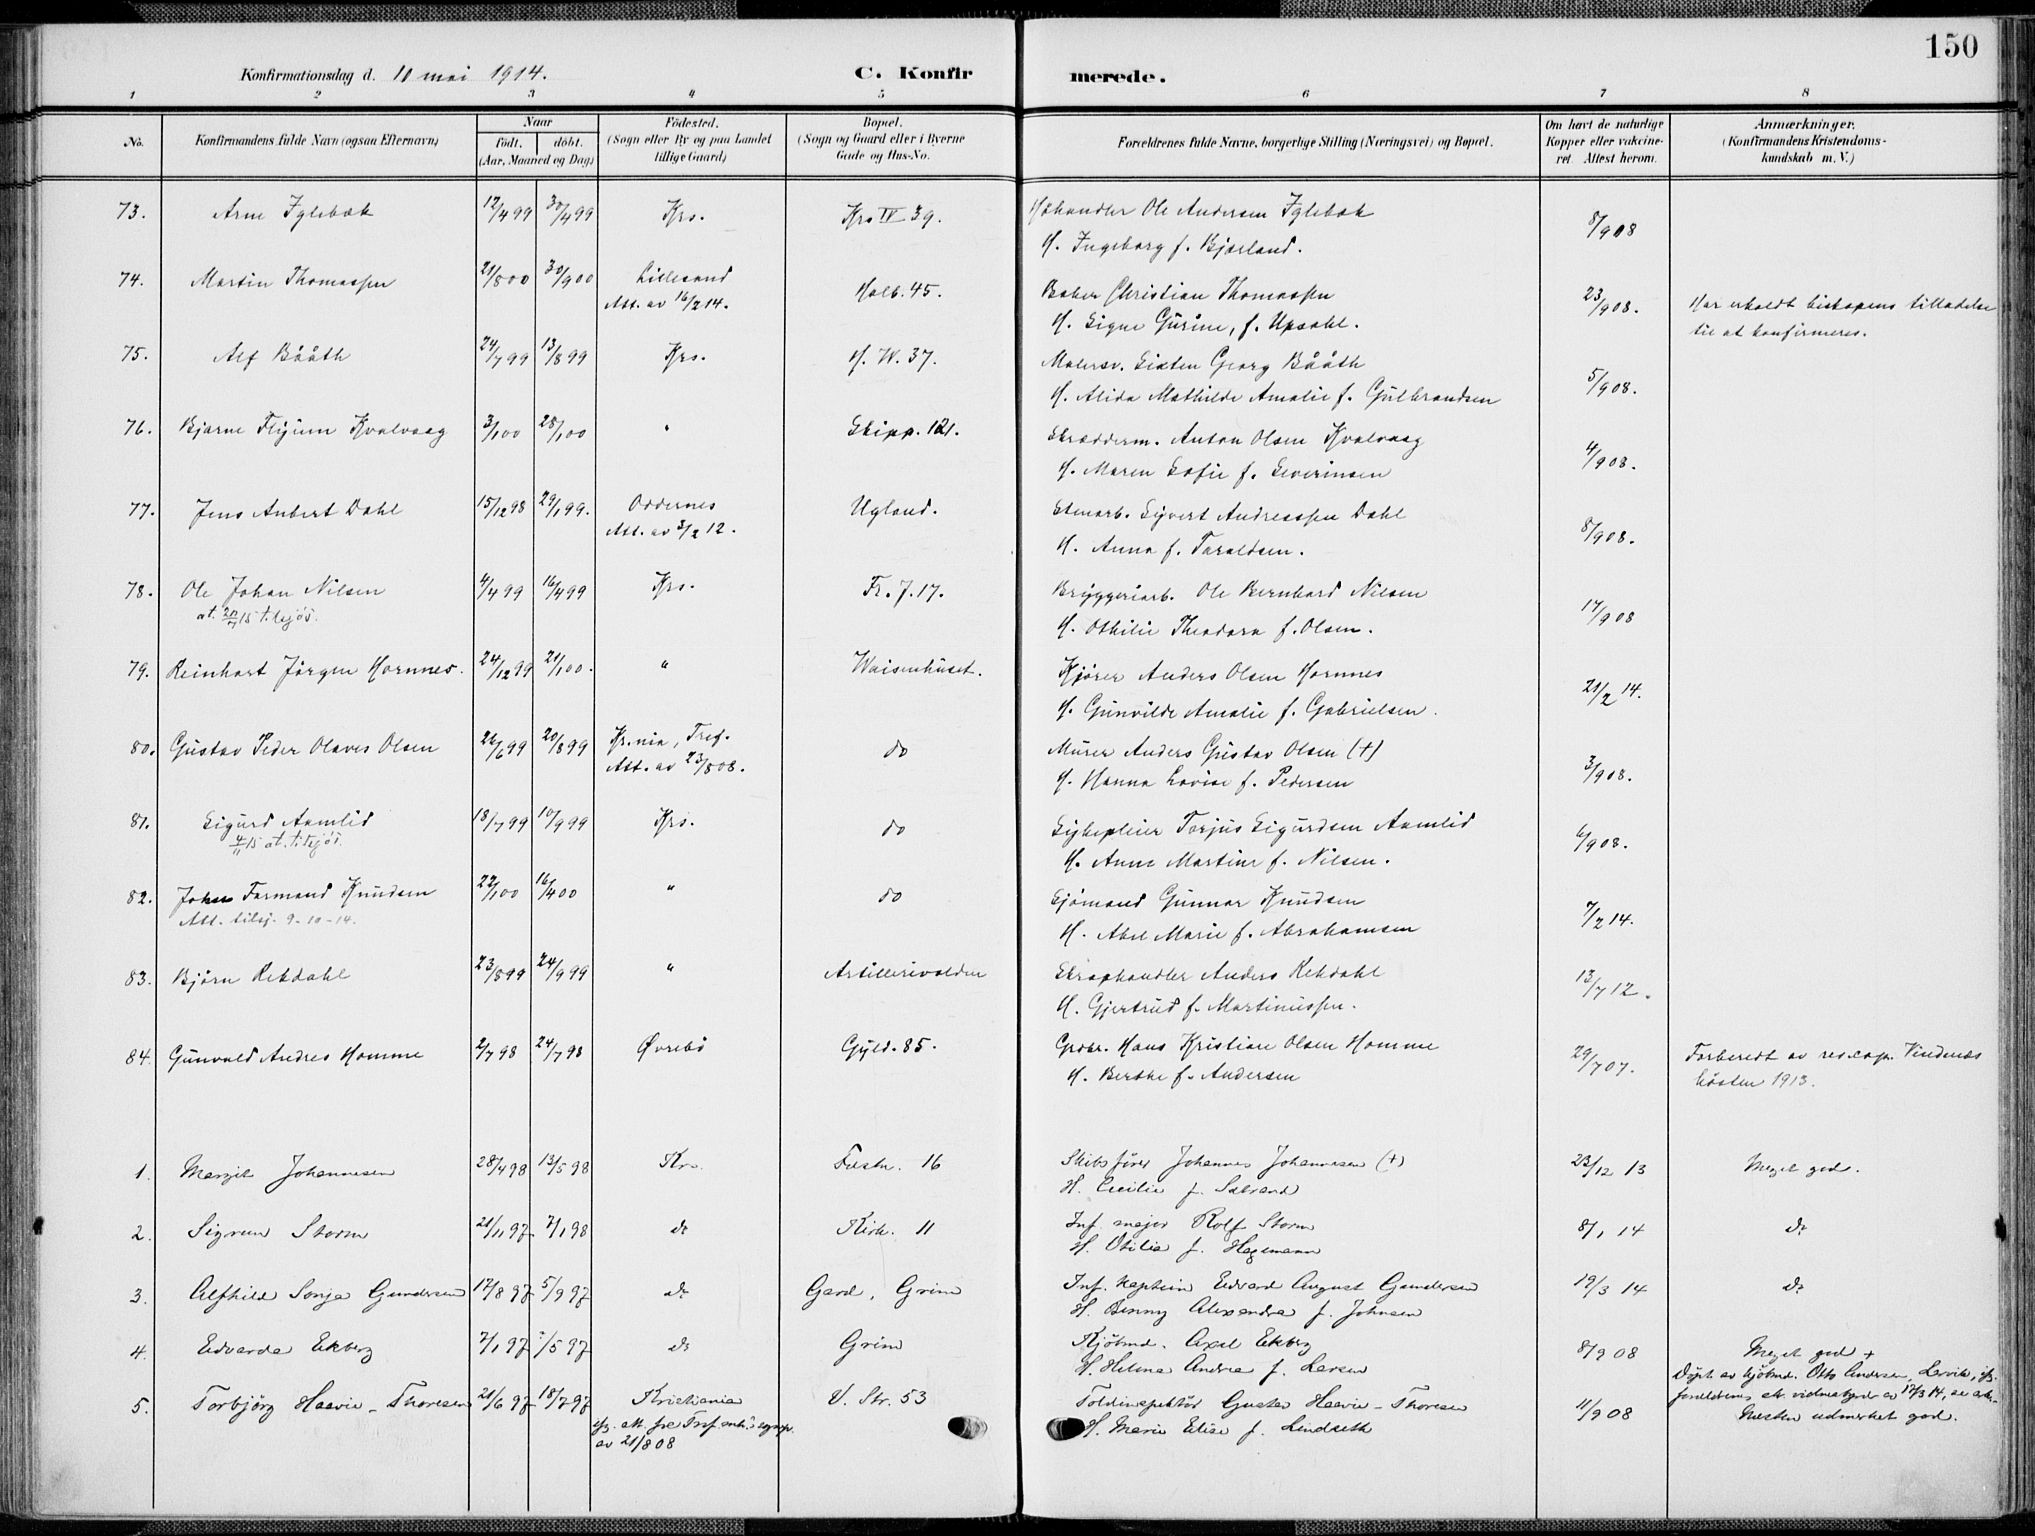 150
Konfirmationsdag d. 10 mai 1914. C. Konfirmerede.
1 2 3 4 5 6 7 8
No. Konfirmandens fulde Navn (ogsaa Efternavn) Naar født. døbt. (Aar, Maaned og Dag) Fødested. (Sogn eller By og paa Landet tillige Gaard) Bopæl. (Sogn og Gaard eller i Byerne Gade og Hus-No. Forældrenes fulde Navne, borgerlige Stilling (Næringsvei) og Bopæl. Om havt de naturlige Kopper eller vakcineret. Attest herom. Anmærkninger. (Konfirmandens Kristendomskundskab m. V.)
73. Arne Iglebæk 12/4 99 30/4 99 Krs. Krs IV 39. Høkandler Ole Andersen Iglebæk 8/9 08
H. Ingeborg f. Bjørland.
74. Martin Thomassen 21/8 00 30/9 00 Lillesand Holb. 45. Baker Christian Thomassen 23/9 08. Har erholdt biskopens tilladelse
Att. av 16/2 14. H. Signe Gurine, f. Upsahl. til at konfirmeres.
75. Alf Bååth 24/7 99 13/8 99 Krs. H. W. 37. Malersv. Sixten Georg Bååth 5/9 08.
H. Alida Mathilde Amalie f. Gulbrandsen
76. Bjarne Thjunn Kvalvaag 3/1 00 28/1 00 " Skipp. 121. Skrædderm. Anton Olsen Kvalvaag 4/9 08.
H. Maren Sofie f. Severinsen
77. Jens Aubert Dahl 15/12 98 29/1 99. Oddernes Ugland. Stenarb. Sivert Andreassen Dahl 8/9 08.
Att. av 3/2 12. H. Anna f. Taraldsen.
78. Ole Johan Nilsen 4/4 99 16/4 99 Krs. Fr. J. 17. Bryggeriarb. Ole Bernhard Nilsen 17/9 08
at. 20/7 15 t. sjøs. H. Othilie Theodora f. Olsen.
79. Reinhart Jørgen Hornnes. 24/12 99 21/1 00. " Waisenhuset. Kjører Anders Olsen Hornnes 21/2 14.
H. Gunvilde Amalie f. Gabrielsen.
80. Gustav Peder Olaves Olsen 26/6 99 20/8 99 Kr.nia, Tref. do Murer Anders Gustav Olsen (+) 3/9 08.
Att. av 23/8 08. H. Hanna Lovise f. Pedersen
81. Sigurd Aamlid 18/7 99 10/9 99 Krs. do Sykepleier Torjus Sigurdsen Aamlid 6/9 08.
4/11 15 at. t. sjøs. H. Anne Martine f. Nilsen.
82. Johan Formand Knudsen 22/1 00 16/4 00 " do Sjømand Gunnar Knudsen 7/2 14.
Att. tilsj. 9-10-14. H. Abel Marie f. Abrahamsen
83. Bjørn Rekdahl 23/8 99 24/9 99 " Artillerivolden Skraphandler Anders Rekdahl 13/7 12.
H. Gjertrud f. Martinussen.
84. Gunvald Andres Homme 2/7 98 24/7 98 Øvrebø Gyld. 85. Grdbr. Hans Kristian Olsen Homme 29/7 07. Forberedt av res.cap. Vindenæs
H. Berthe f. Andersen høsten 1913.
1. Margit Johannesen 28/4 98 13/5 98 Krs. Fæstn. 16 Skibsfører Johannes Johannesen (+) 23/12 13 Meget god.
H. Cecilie f.
2. Sigrun Storm 21/11 97 7/1 98 do Kirk. 11 Inf. major Rolf Storm 8/1 14 do
H. Otilia f. Hagemann
3. Alfhild Sonja Gundersen 17/8 97 5/9 97 do Gard, Grim Inf. kaptein Edvard August Gundersen 19/3 14 do
H. Benny Alexandra f. Johnsen
4. Edvarda Ekberg 7/1 97 /5 97 do Grim Kjøbmd. Axel Ekberg 8/9 08 Meget god +
H. Helma Andrea f. Larsen Døpt av kjøbmd. Otto Andersen, Larvik, ifg.
5. Torbjørg Haavie-Thoresen 21/6 97 18/7 97 Kristiania V. Str. 53 Toldinspektør Gustav Haavie-Thoresen 11/9 08 forældrenes av 17/3 14,
ifg. att. fra Tref. av 21/8 08 H. Marie Elise f. Lindseth Næsten udmerket god.